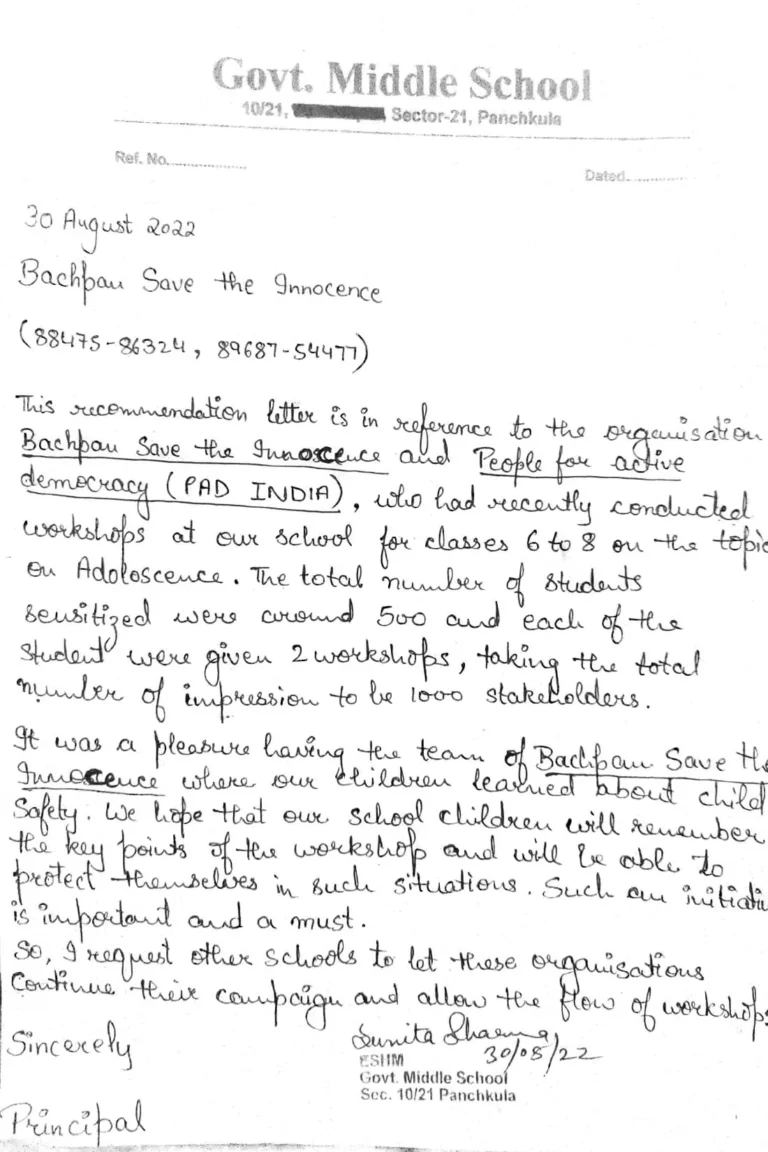 Govt. Middle School
10/21, Sector-21, Panchkula
Ref. No..................
Dated..............
30 August 2022
Bachpan Save the Innocence
(88475-86324, 89687-54477)
This recommendation letter is in reference to the organisation
Bachpan Save the Innoscence and People for active
democracy (PAD INDIA), who had recently conducted
workshops at our school for classes 6 to 8 on the topic
on Adoloscence. The total number of students
sensitized were around 500 and each of the
student were given 2 workshops, taking the total
number of impression to be 1000 stakeholders.
It was a pleasure having the team of Bachpan Save the
Innocence where our children learned about child
Safety. We hope that our school children will remember
the key points of the workshop and will be able to
protect themselves in such situations. Such an initiati
is important and a must.
So, I request other schools to let these organisations
Continue their campaign and allow the flow of workshops
Sunita Sharma
Sincerely 30/08/22
ESHM
Govt. Middle School
Sec. 10/21 Panchkula
Principal